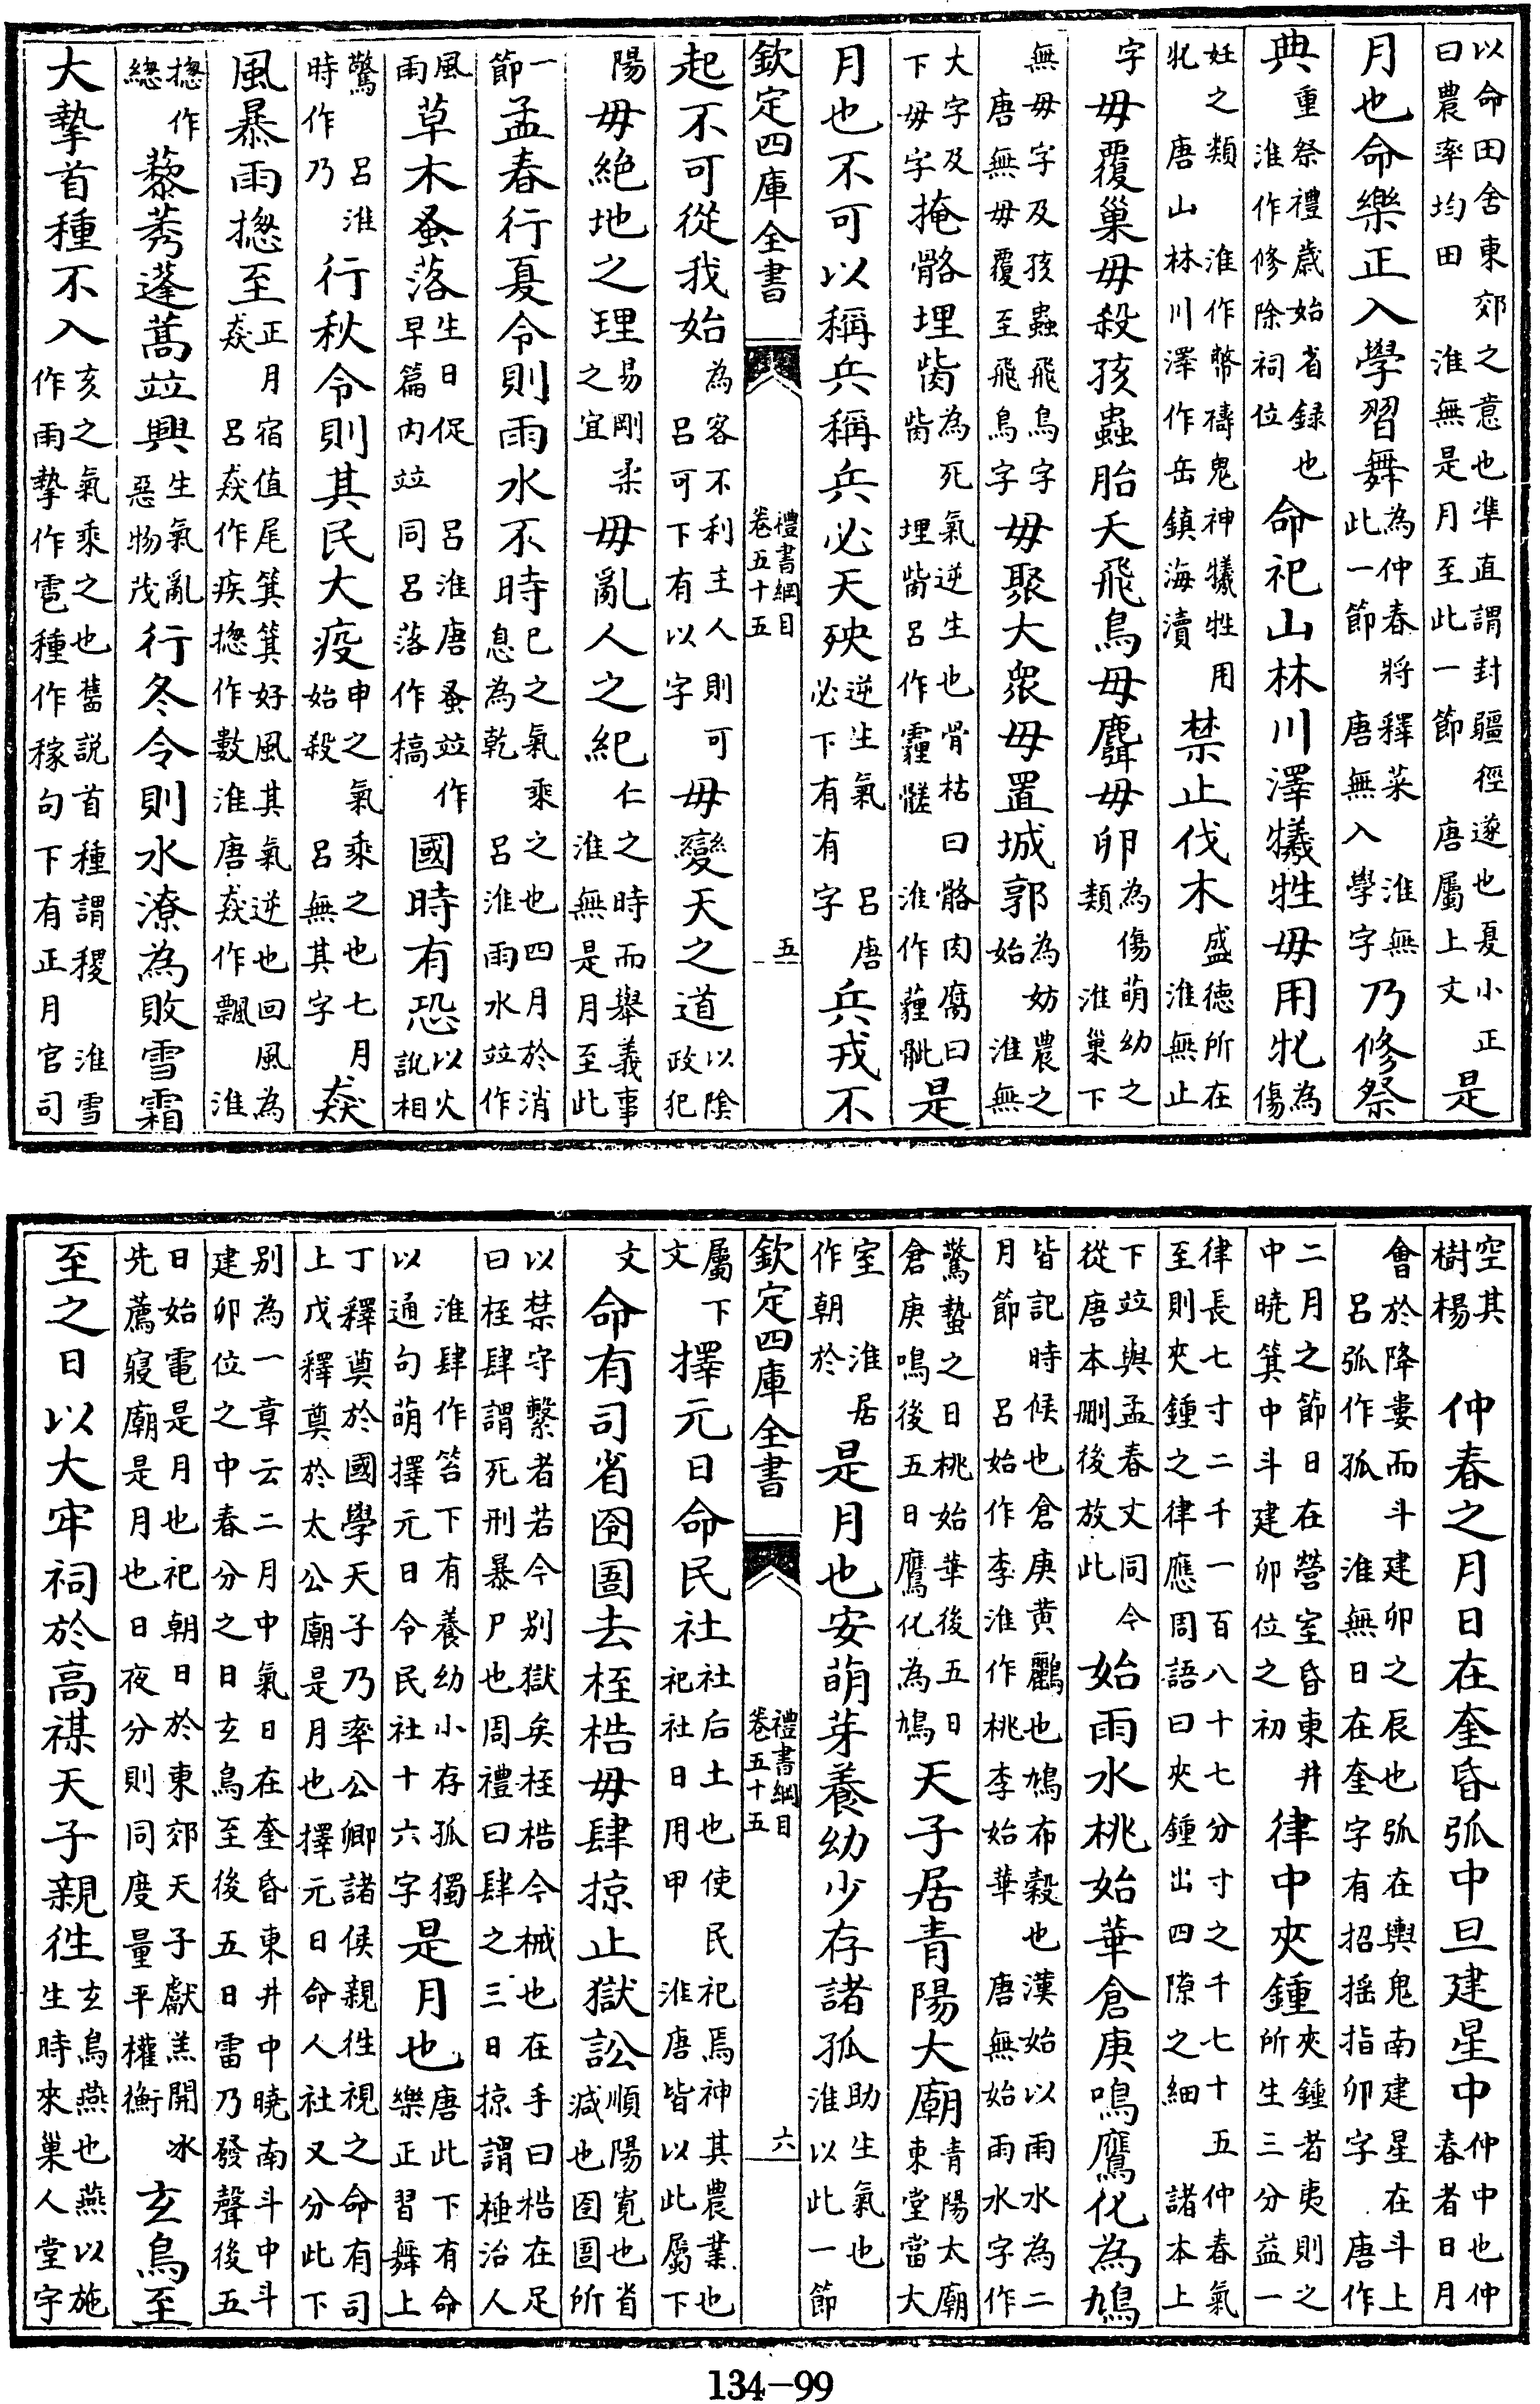 以命田舍東郊之意也準直謂封疆徑遂也夏小正曰農率均田 淮無是月至此一節 唐屬上文是
月也命樂正入學習舞為仲春將釋菜 淮無此一節 唐無入學字乃修祭
典重祭禮歲始省録也淮作修除祠位命祀山林川澤犧牲毋用牝為傷
妊之類 淮作幣禱鬼神犧牲用牝 唐山林川澤作岳鎮海瀆禁止伐木盛德所在淮無止
字毋覆巢毋殺孩蟲胎夭飛鳥毋麛毋卵為傷萌幼之類 淮巢下
無毋字及孩蟲飛鳥字唐無毋覆至飛鳥字毋聚大衆毋置城郭為妨農之始 淮無
大字及下毋字掩骼埋胔為死氣逆生也骨枯曰骼肉腐曰胔 埋胔呂作霾髊 淮作薶骴是
月也不可以稱兵稱兵必天殃逆生氣 呂唐必下有有字兵戎不
欽定四庫全書 禮書綱目卷五十五 五
起不可從我始為客不利主人則可 呂可下有以字毋變天之道以陰政犯
陽毋絶地之理易剛柔之宜毋亂人之紀仁之時而舉義事淮無是月至此
一節孟春行夏令則雨水不時已之氣乘之也四月於消息為乾 呂淮雨水並作
風雨草木蚤落生日促 呂淮唐蚤並作早篇内並同呂落作槁國時有恐以火訛相
驚 呂淮時作乃行秋令則其民大疫申之氣乘之也七月始殺 呂無其字猋
風暴雨揔至正月宿值尾箕箕好風其氣逆也回風為猋 呂猋作疾揔作數淮唐猋作飄 淮
揔作總藜莠蓬蒿並興生氣亂惡物茂行冬令則水潦為敗雪霜
大摯首種不入亥之氣乘之也舊説首種謂稷 淮雪作雨摯作雹種作稼句下有正月官司
空其樹楊 仲春之月日在奎昏弧中旦建星中仲中也仲春者日月
會於降婁而斗建卯之辰也弧在輿鬼南建星在斗上 呂弧作孤 淮無日在奎字有招揺指卯字 唐作
二月之節日在營室昏東井中曉箕中斗建卯位之初律中夾鍾夾鍾者夷則之所生三分益一
律長七寸二千一百八十七分寸之千七十五仲春氣至則夾鍾之律應周語曰夾鍾出四隙之細 諸本上
下並與孟春文同今從唐本刪後放此始雨水桃始華倉庚鳴鷹化為鳩
皆記時候也倉庚黄鸝也鳩布穀也漢始以雨水為二月節 呂始作李淮作桃李始華 唐無始雨水字作
驚蟄之日桃始華後五日倉庚鳴後五日鷹化為鳩天子居青陽大廟青陽太廟東堂當大
室 淮居作朝於是月也安萌芽養幼少存諸孤助生氣也淮以此一節
欽定四庫全書 禮書綱目卷五十五 六
屬下文擇元日命民社社后土也使民祀焉神其農業也祀社日用甲 淮唐皆以此屬下
文命有司省囹圄去桎梏毋肆掠止獄訟順陽寛也省減也囹圄所
以禁守繫者若今别獄矣桎梏今械也在手曰梏在足曰桎肆謂死刑暴尸也周禮曰肆之三日掠謂捶治人
淮肆作笞下有養幼小存孤獨以通句萌擇元日令民社十六字是月也唐此下有命樂正習舞上
丁釋奠於國學天子乃率公卿諸侯親徃視之命有司上戊釋奠於太公廟是月也擇元日命人社又分此下
别為一章云二月中氣日在奎昏東井中曉南斗中斗建卯位之中春分之日玄鳥至後五日雷乃發聲後五
日始電是月也祀朝日於東郊天子獻羔開冰先薦寢廟是月也日夜分則同度量平權衡玄鳥至
至之日以大牢祠於高禖天子親徃玄鳥燕也燕以施生時來巢人堂宇
134-99